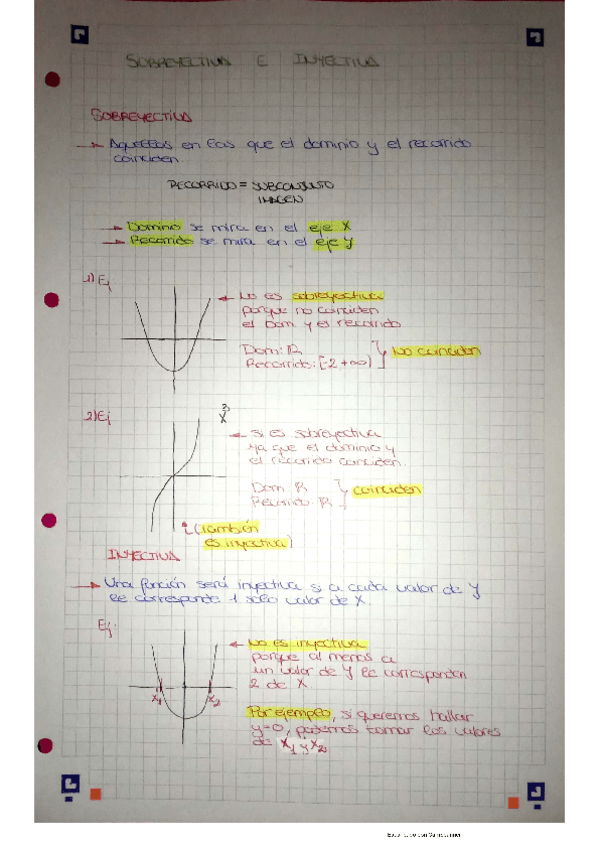 SOBREYECTIVA E INYECTIVA
SOBREYECTIVA
→ Aquellas en las que el dominio y el recorrido
coinciden
RECORRIDO = SUBCONJUNTO
IMAGEN
→ Dominio se mira en el eje X
→ Recorrido se mira en el eje Y
1) Ej
← No es sobreyectiva
porque no coinciden
el Dom. y el recorrido
Dom: ℝ
Recorrido: [-2 +∞)
No coinciden
2) Ej
x³
← Si es sobreyectiva
ya que el dominio y
el recorrido coinciden.
Dom ℝ
Recorrido: ℝ
coinciden
(También
es inyectiva)
INYECTIVA
→ Una función será inyectiva si a cada valor de Y
le corresponde 1 solo valor de X.
Ej:
x₁ x₂
← No es inyectiva
porque al menos a
un valor de Y le corresponden
2 de X
Por ejemplo, si queremos hallar
y=0, podemos tomar los valores
de x₁ y x₂